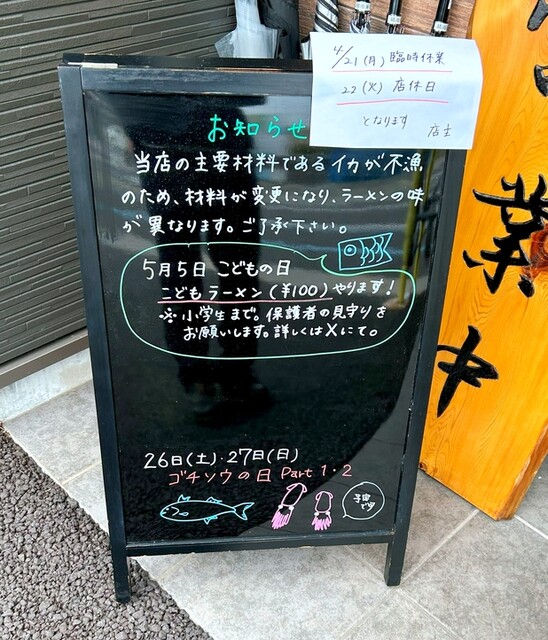 4/21(月)臨時休業
22(火)店休日
となります
店主
お知らせ
当店の主要材料であるイカが不漁
のため、材料が変更になり、ラーメンの味
が異なります。ご了承下さい。
5月5日 こどもの日
こどもラーメン(¥100)やります!
※小学生まで。保護者の見守りを
お願いします。詳しくはXにて。
26日(土)・27日(日)
ゴチソウの日 Part 1・2
です
業中